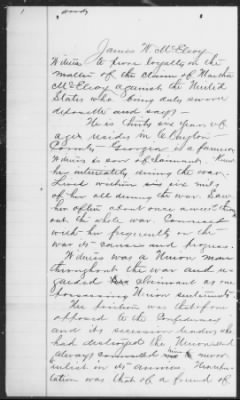 James W. McElroy
Witness to prove loyalty in the
matter of the claim of Martha
McElroy against the United
States who being duly sworn
deposeth and says -
He is thirty six years of
age resides in Clayton
County Georgia is a farmer
Witness is son of claimant. Knew
her intimately during the war.
Lived within six miles
of her all during the war. Saw
her often about once a week through
out the whole war. Conversed
with her frequently on the
war its causes and progress.
Witness was a Union man
throughout the war and re
garded claimant as one
possessing Union sentiments
Her position was that of one
opposed to the Confederacy
and its secession leaders who
had destroyed the Union and
always me never
enlist in its armies. Her repu
tation was that of a friend of